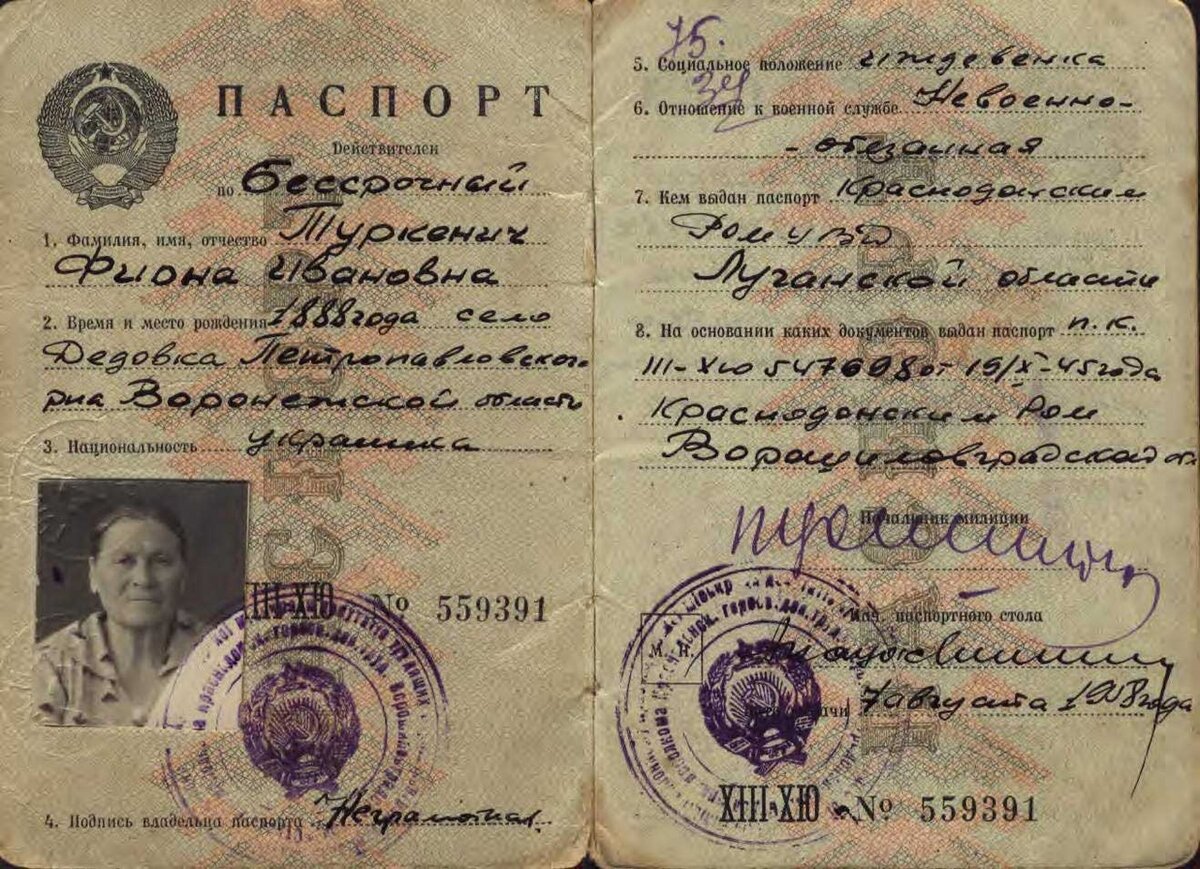 ПАСПОРТ
Действителен
по Бессрочный
1. Фамилия, имя, отчество Туркенич
Фиона Ивановна
2. Время и место рождения 1888 года село
Дедовка Петропавловского
р-на Воронежской области
3. Национальность украинка
XIII-ХЮ № 559391
4. Подпись владельца паспорта Неграмотная
75.
34
5. Социальное положение иждевенка
6. Отношение к военной службе Невоенно-
- обезанная
7. Кем выдан паспорт Краснодонским
Ром УВД
Луганской области
8. На основании каких документов выдан паспорт п.к.
III-ХЮ 547698 от 19/X-45 года
Краснодонским Ром
Ворошиловградской о
Начальник милиции
М. П.
Нач. паспортного стола
7 августа 1958 года
XIII-ХЮ № 559391